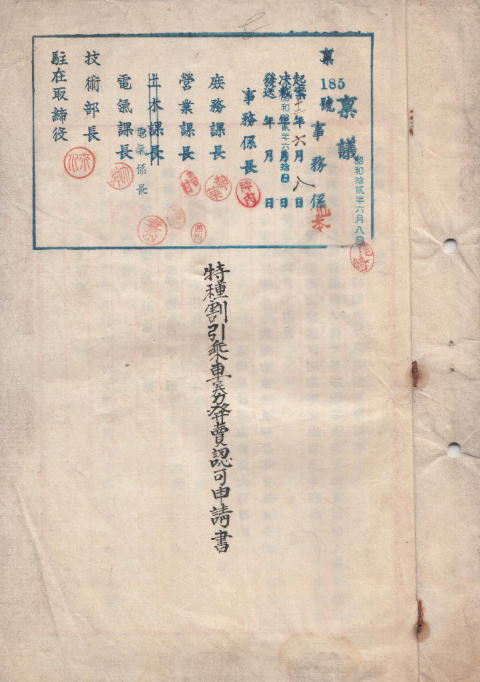 稟
185
號
稟議
事務係
昭和拾貳年六月八日
起案十二年六月八日
決裁 年 月 日
昭和拾貳年六月拾日
發送 年 月 日
事務係長
庶務課長
營業課長
土木課長
電氣係長
電氣課長
技術部長
駐在取締役
特種割引乘車券發賣認可申請書